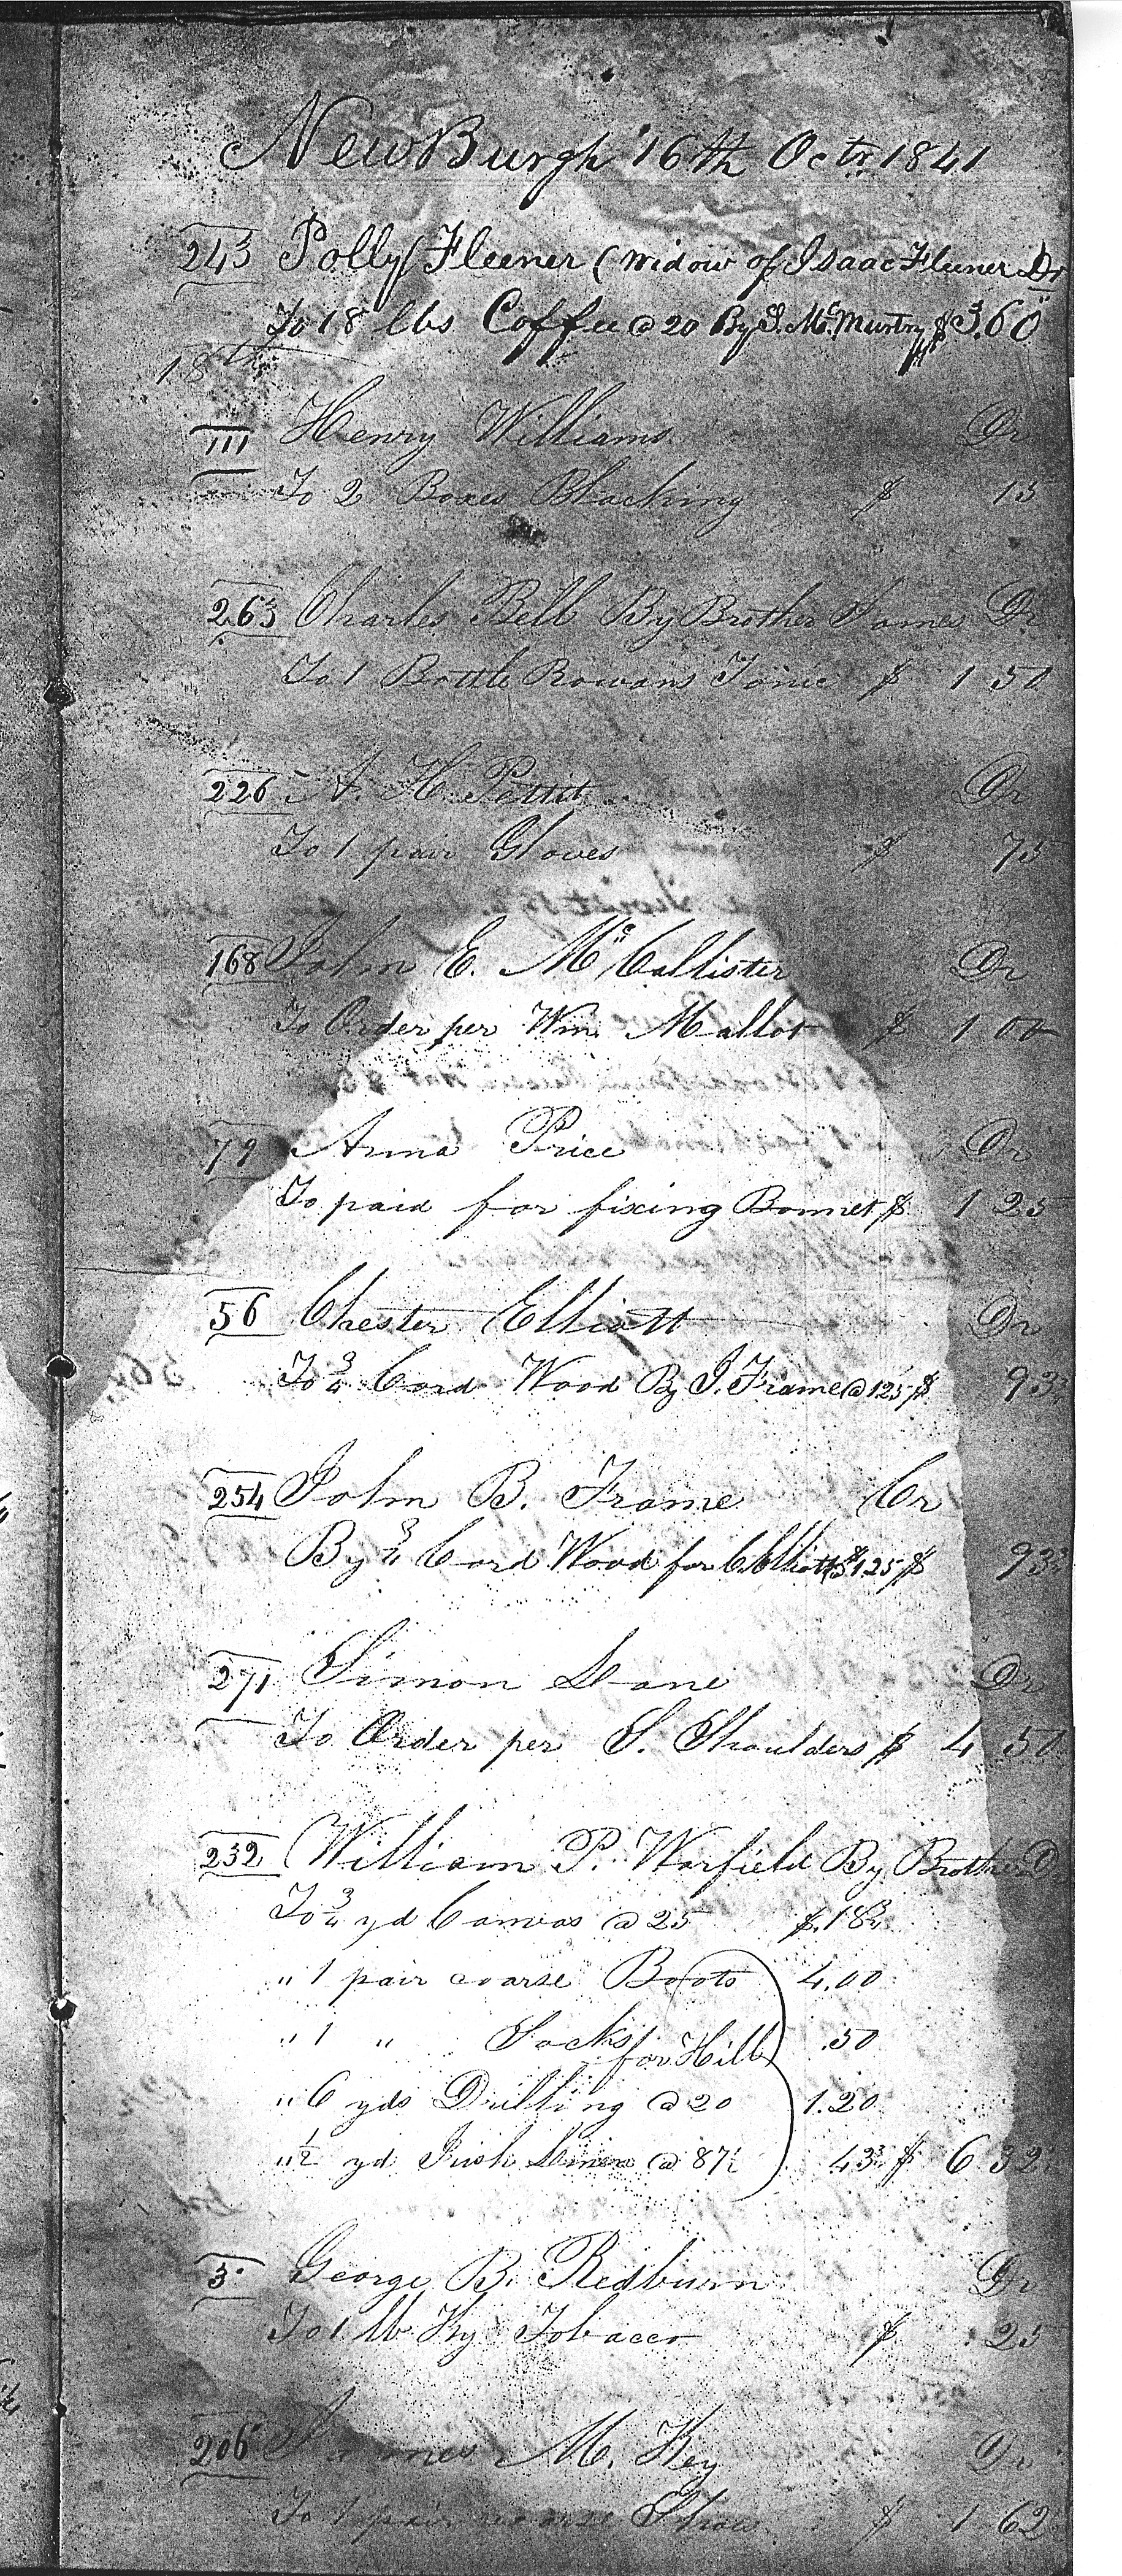 NewBurgh 16th Octr. 1841
243 Polly Fleener (Widow of Isaac Fleener Dr
To 18 lbs Coffee @ 20 By J. McMurtry $ 3.60
18th
111 Henry Williams Dr
To 2 Boxes Blacking $ 15
263 Charles Bell By Brother James Dr
To 1 Bottle Rowans Tonic $ 1 50
226 A. H. Pettit Dr
To 1 pair Gloves $ 75
168 John E. McCallister Dr
To Order per Wm. Mallot $ 1 00
79 Anna Price Dr
To paid for fixing Bonnet $ 1 25
56 Chester Elliott Dr
To 3/4 Cord Wood By J. Frame @ 125 $ 93
254 John B. Frame Cr
By 3/4 Cord Wood for C. Elliott $1.25 $ 93
271 Simon Lane Dr
To Order per S. Shoulders $ 4 50
232 William P. Warfield By Brother D
To 3/4 yd Canvas @ 25 $.18 3/4
" 1 pair coarse Boots 4.00
" 1 " Socks .50
for Hill
" 6 yds Drilling @ 20 1.20
" 1/2 yd Irish Linen @ 87 1/2 43 3/4 $ 6 32
3 George B. Redburn Dr
To 1 lb Ky Tobacco $ .25
206 James M. Key Dr
To 1 pair coarse Shoes $ 1 62